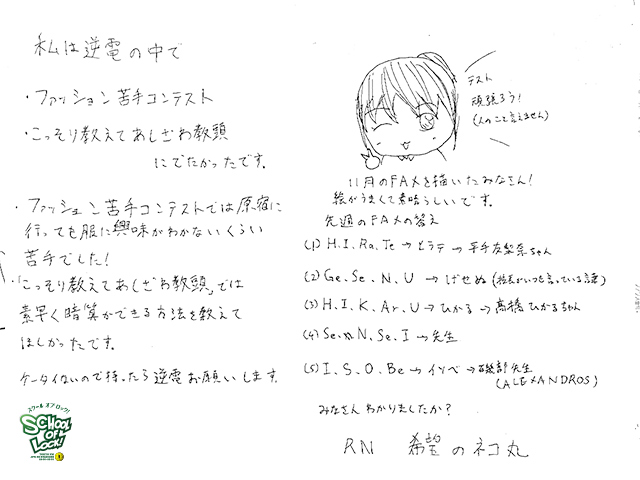 私は逆電の中で
・ファッション苦手コンテスト
・こっそり教えてあしざわ教頭
にでたかったです。
・ファッション苦手コンテストでは原宿に
行っても服に興味がわかないくらい
苦手でした!
・「こっそり教えてあしざわ教頭」では
素早く暗算ができる方法を教えて
ほしかったです。
ケータイないので持ったら逆電お願いします。
スクール オブ ロック!
SCHOOL
OF
LOCK!
テスト
頑張ろう!
(人のこと言えません)
11月のFAXを描いたみなさん!
絵がうまくて素晴らしいです。
先週のFAXの答え
(1) H.I.Ra.Te→ヒラテ→平手友梨奈ちゃん
(2) Ge.Se.N.U→げせぬ(校長がいつも言っている謎)
(3) H.I.K.Ar.U→ひかる→高橋ひかるちゃん
(4) Se.N.Se.I→先生
(5) I.S.O.Be→イソベ→磯部先生
(ALEXANDROS)
みなさんわかりましたか?
RN 希望のネコ丸